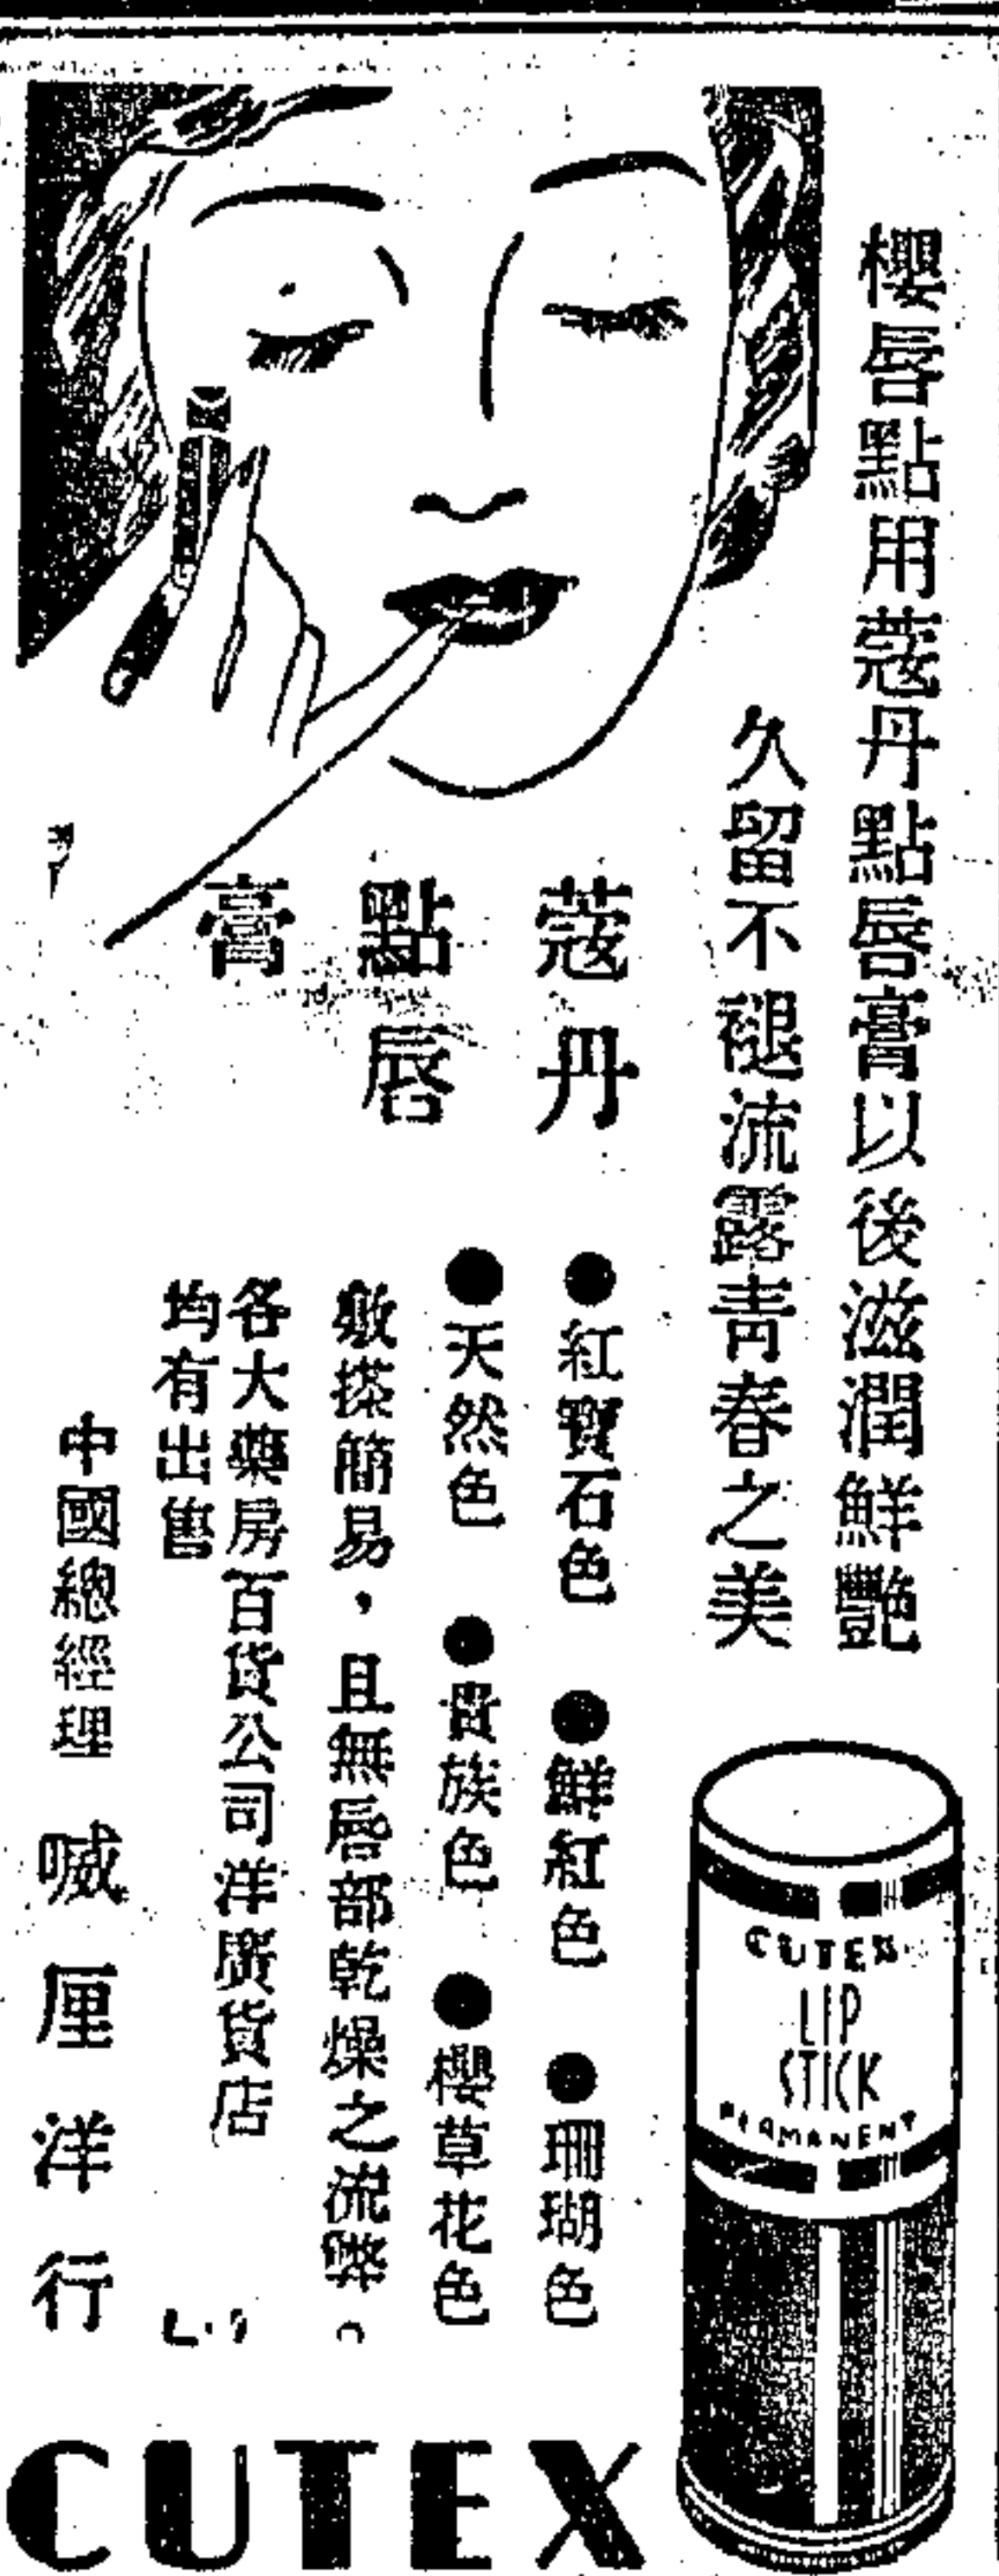 櫻唇點用蔻丹點唇膏以後滋潤鮮艷
久留不褪流露青春之美
蔻丹
點唇
膏
●紅寶石色 ●鮮紅色 ●珊瑚色
●天然色 ●貴族色 ●櫻草花色
敷搽簡易，且無唇部乾燥之流弊。
各大藥房百貨公司洋廣貨店
均有出售
中國總經理 喊厘洋行
CUTEX
LIP
STICK
PERMANENT
CUTEX